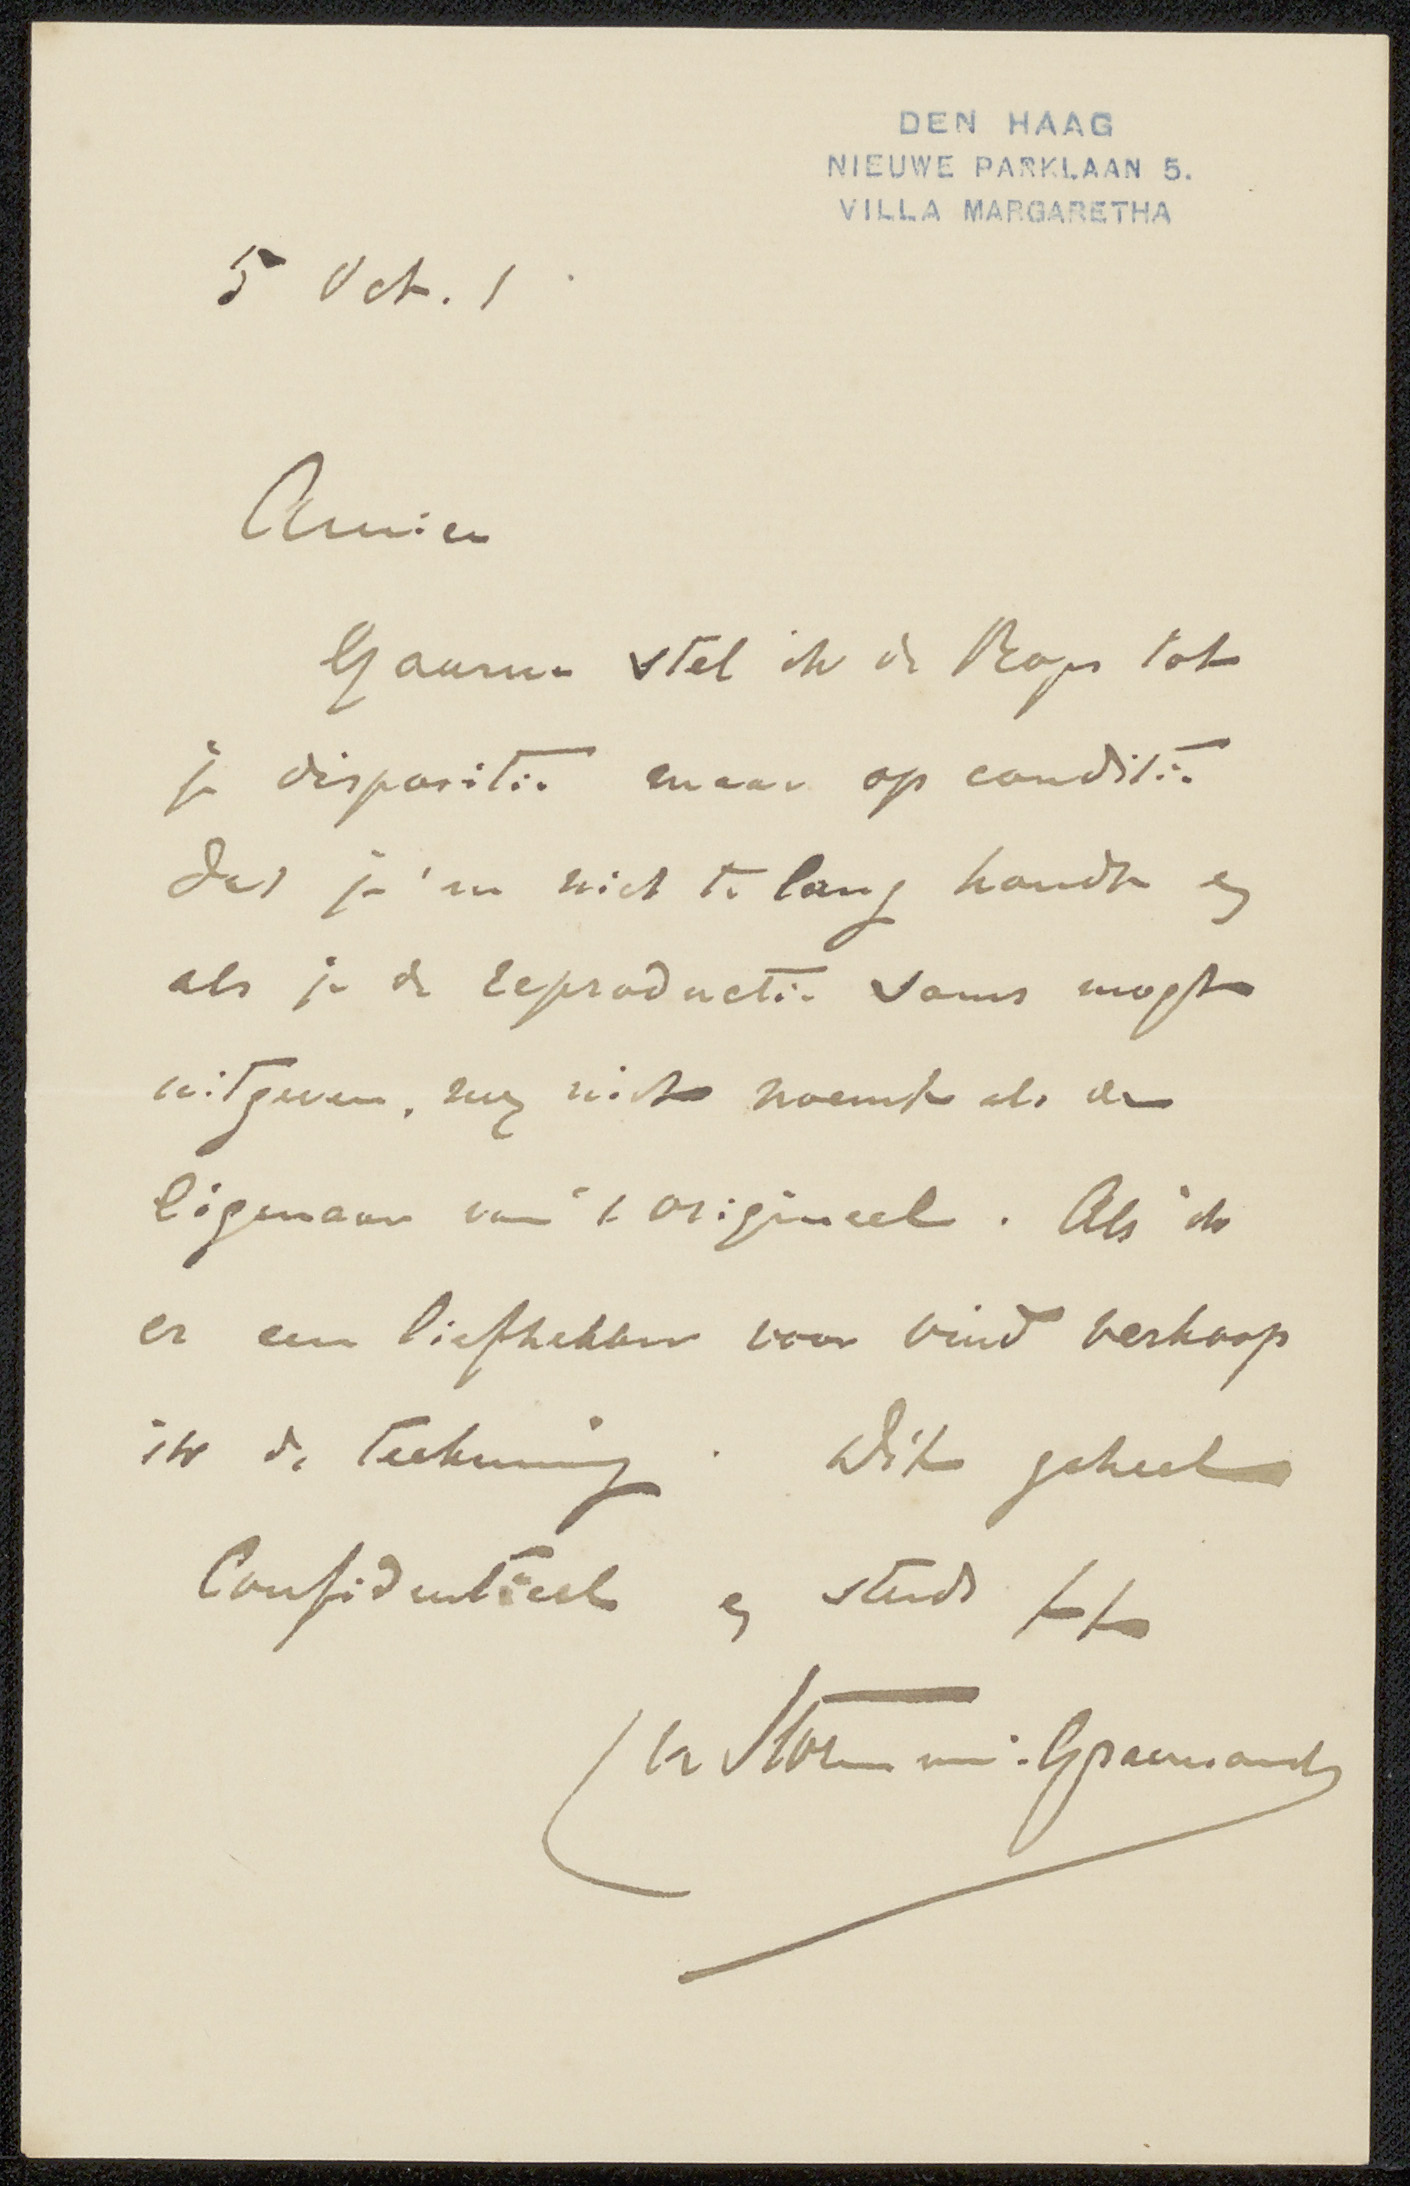 DEN HAAG
NIEUWE PARKLAAN 5.
VILLA MARGARETHA
5 Oct. 1
Amice
Gaarne stel ik de Rops tot
je dispositie maar op conditie
dat je 'm niet te lang houdt en
als je de reproductie soms mogt
uitgeven, mij niet noemt als de
Eigenaar van 't origineel. Als ik
er een liefhebber voor vind verkoop
ik de teekening. Dit geheel
Confidentieel en steeds tt
Storm van 's Gravesande